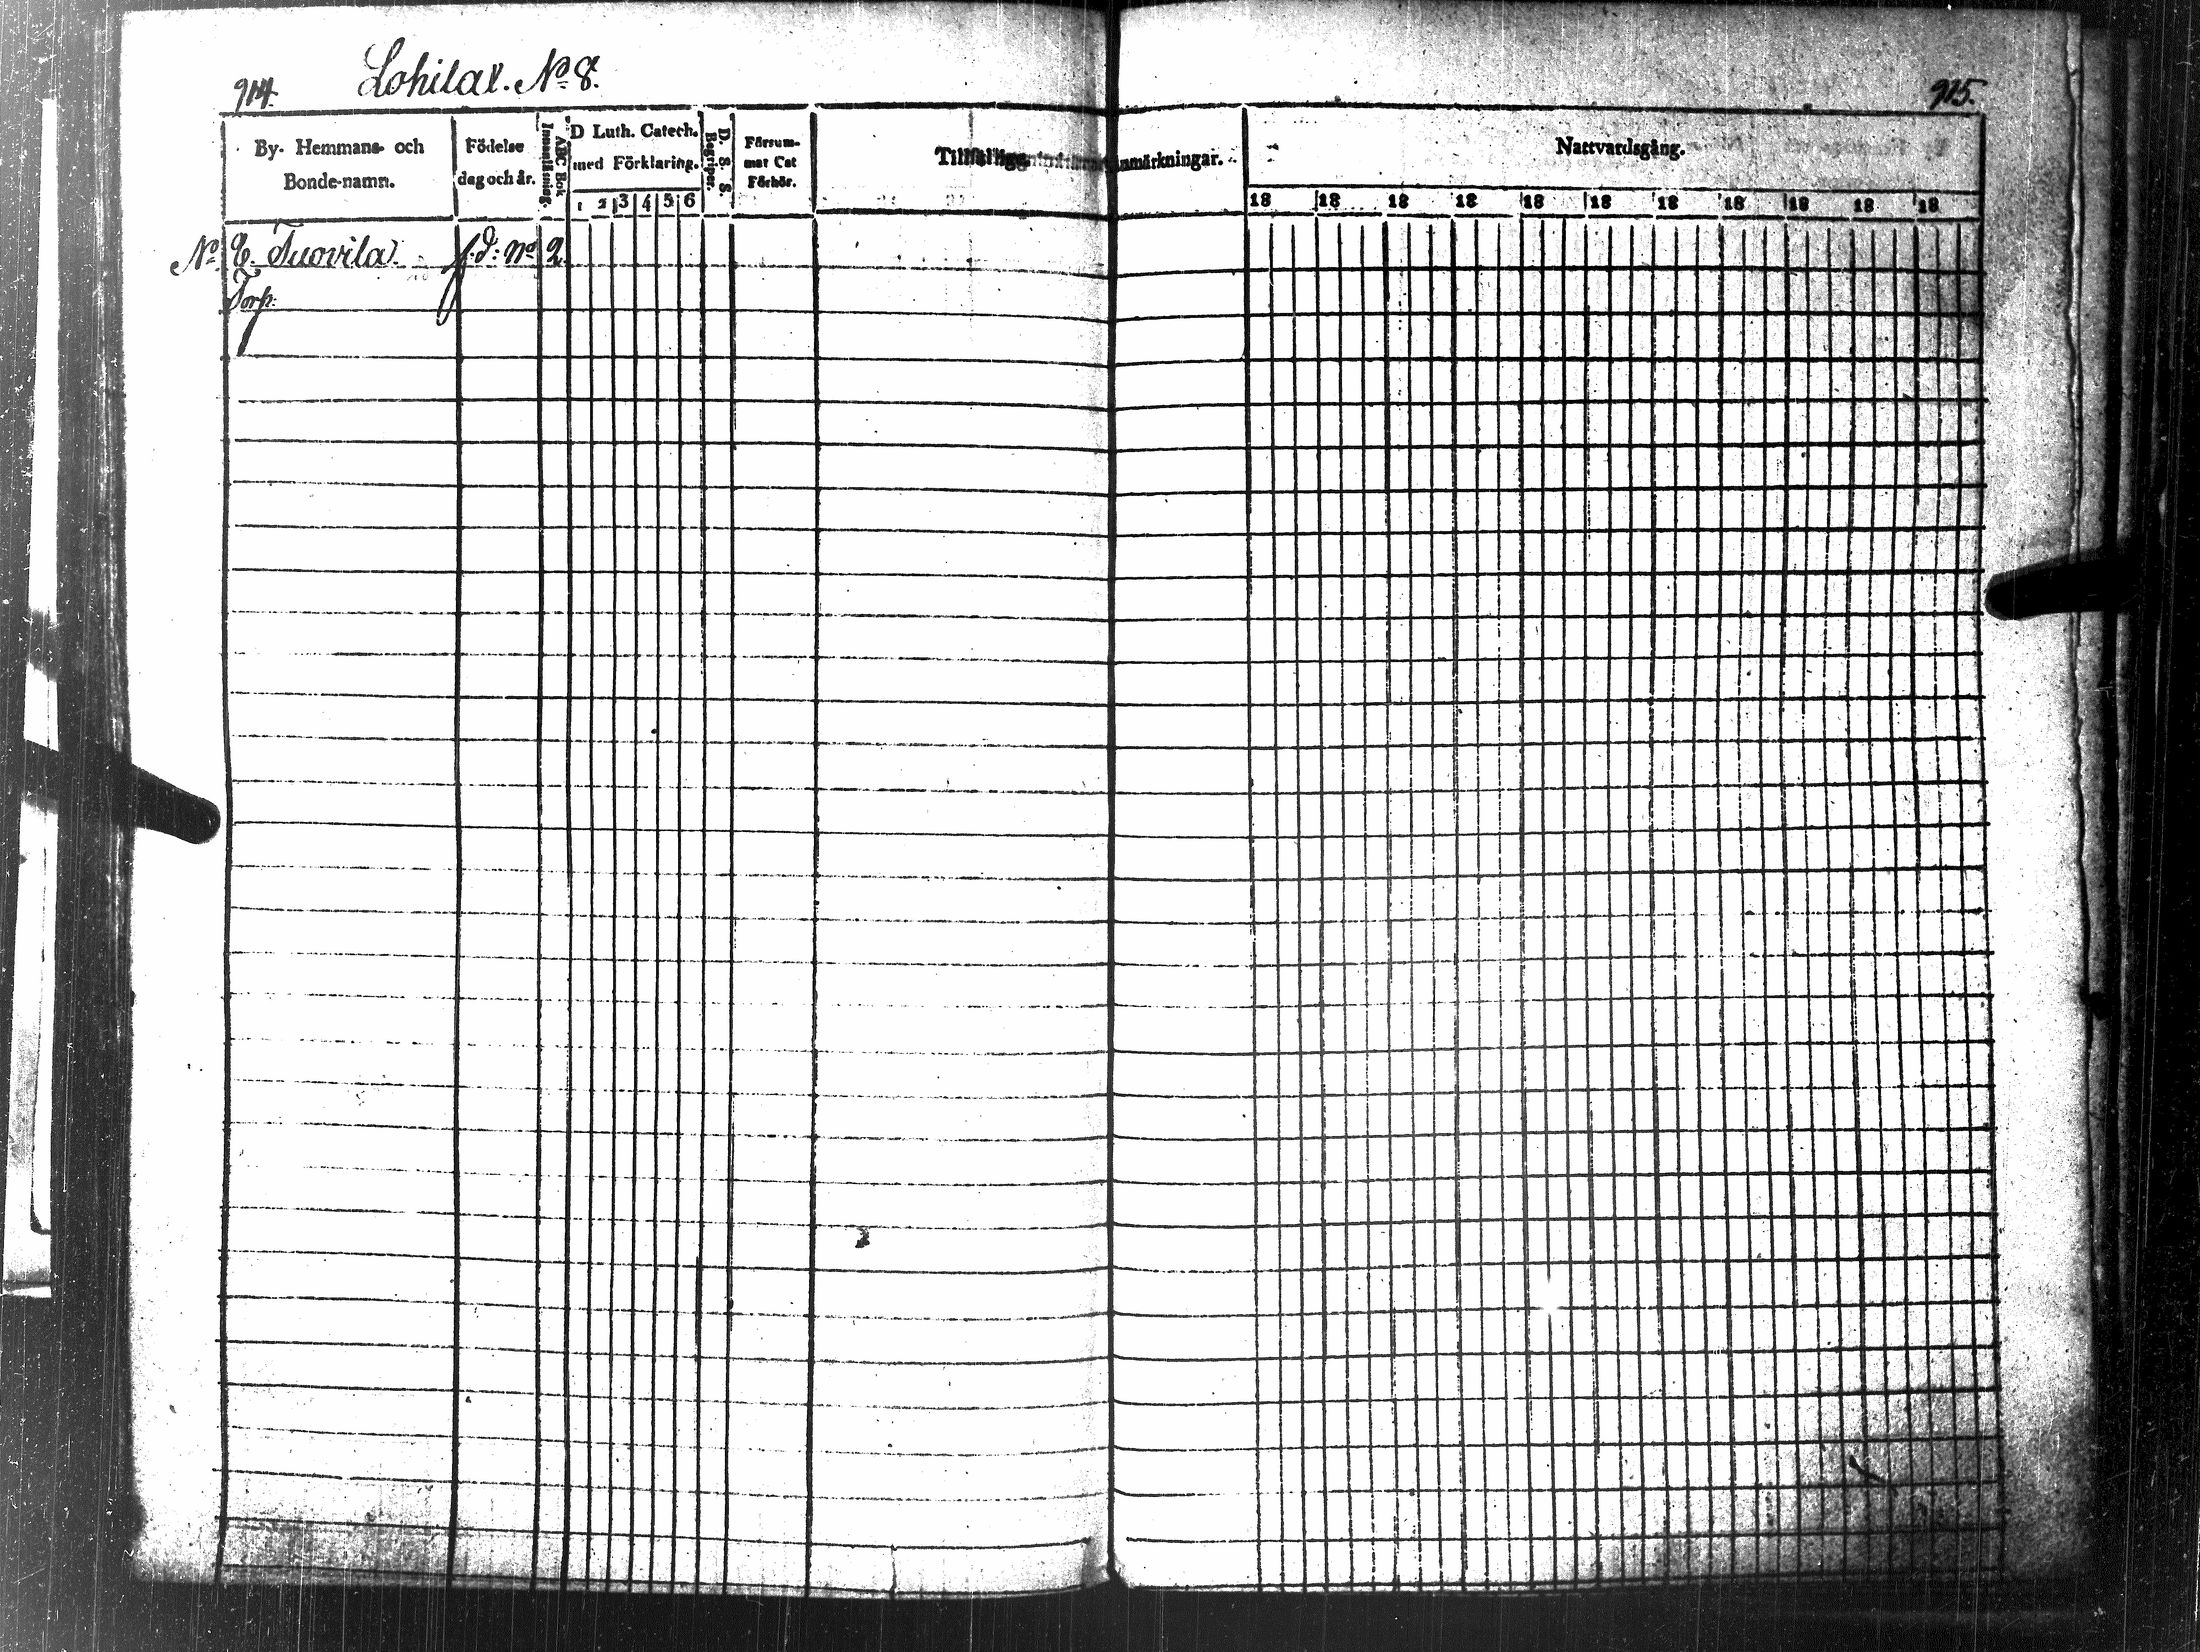 914.
Lohilax. No 8.
915.
By- Hemmans- och
Bonde-namn.
Födelse
dag och år.
ABC Bok
Innanläsning.
D Luth. Catech.
med Förklaring.
1 2 3 4 5 6
D. S. S.
Begriper.
Försum-
mat Cat
Förhör.
Tillfällige Anmärkningar.
Nattvardsgång.
18 18 18 18 18 18 18 18 18 18 18
No 8. Tuovila. f. d: No 2.
Torp: